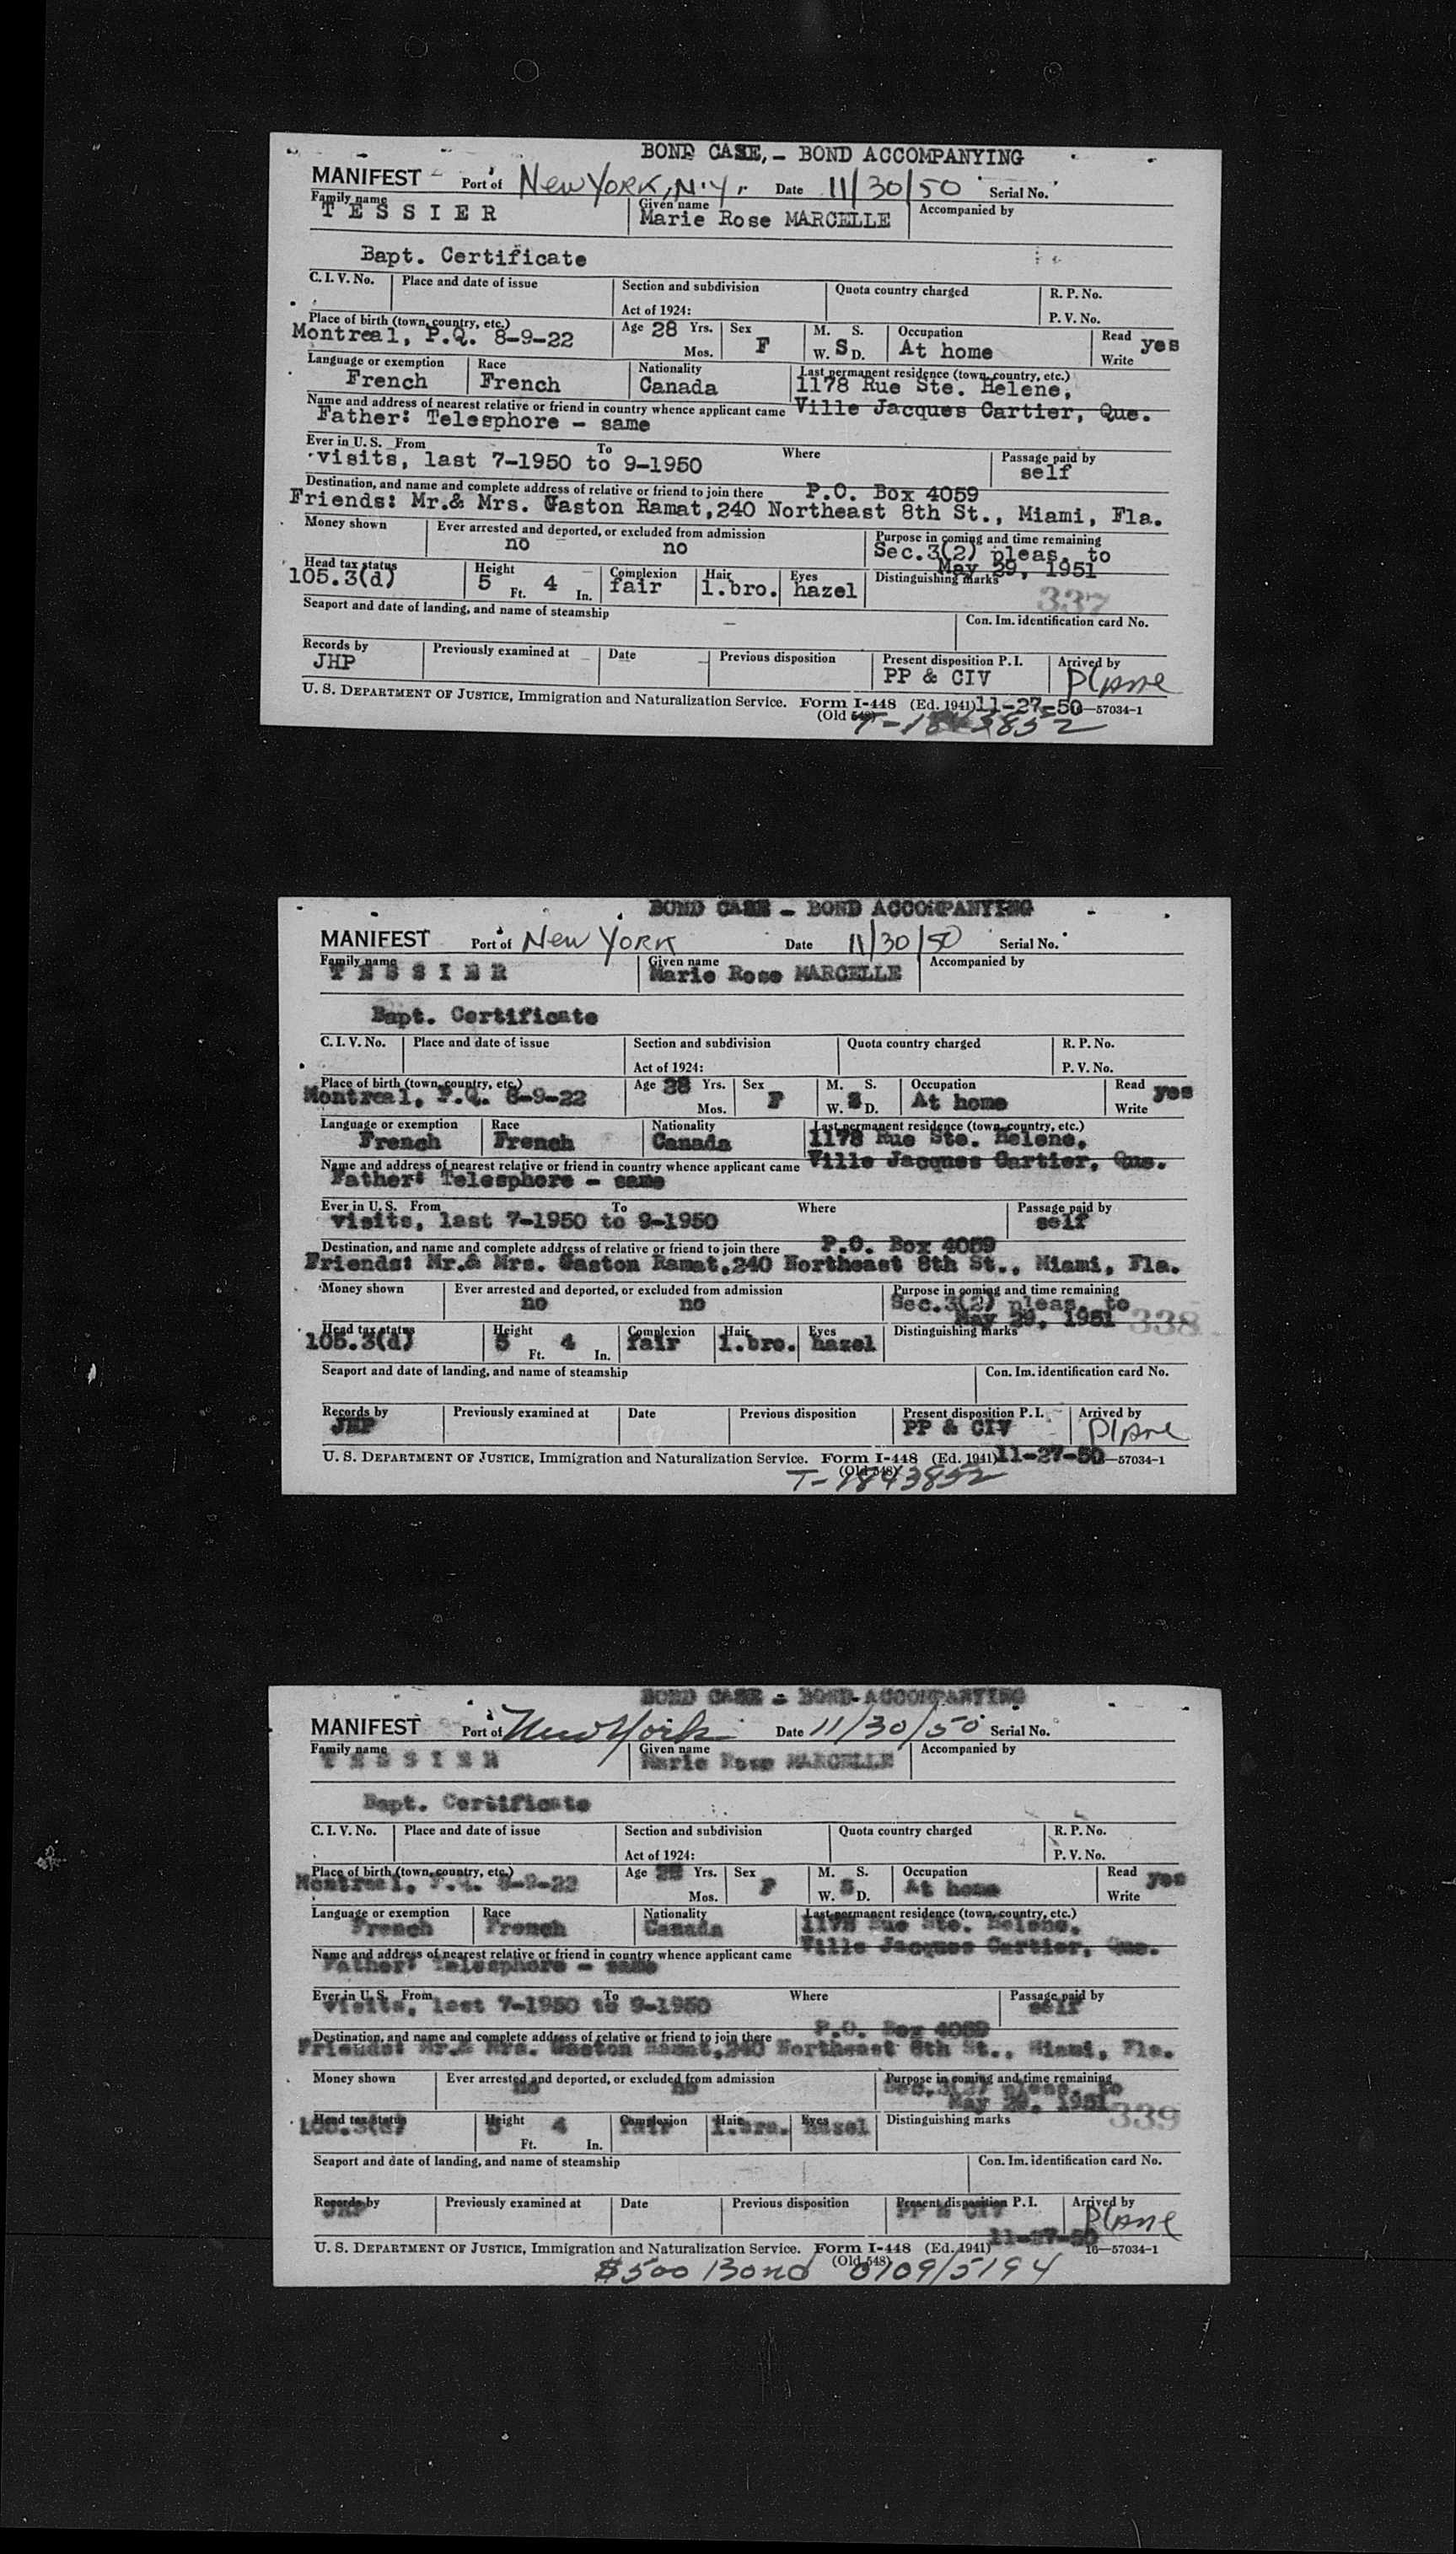 BOND CASE, - BOND ACCOMPANYING
MANIFEST Port of New York, N.Y. Date 11/30/50 Serial No.
Family name Given name Accompanied by
TESSIER Marie Rose MARCELLE
Bapt. Certificate
C. I. V. No. Place and date of issue Section and subdivision Quota country charged R. P. No.
Act of 1924: P. V. No.
Place of birth (town, country, etc.) Age 28 Yrs. Sex M. S. Occupation Read yes
Montreal, P.Q. 8-9-22 Mos. F W. S D. At home Write
Language or exemption Race Nationality Last permanent residence (town, country, etc.)
French French Canada 1178 Rue Ste. Helene,
Name and address of nearest relative or friend in country whence applicant came Ville Jacques Cartier, Que.
Father: Telesphore - same
Ever in U. S. From To Where Passage paid by
visits, last 7-1950 to 9-1950 self
Destination, and name and complete address of relative or friend to join there P.O. Box 4059
Friends: Mr.& Mrs. Gaston Ramat,240 Northeast 8th St., Miami, Fla.
Money shown Ever arrested and deported, or excluded from admission Purpose in coming and time remaining
no no Sec.3(2) pleas. to
May 29, 1951
Head tax status Height Complexion Hair Eyes Distinguishing marks
105.3(d) 5 Ft. 4 In. fair l.bro. hazel 337
Seaport and date of landing, and name of steamship Con. Im. identification card No.
Records by Previously examined at Date Previous disposition Present disposition P. I. Arrived by
JHP PP & CIV Plane
U. S. DEPARTMENT OF JUSTICE, Immigration and Naturalization Service. Form I-448 (Ed. 1941) 11-27-50 —57034-1
(Old 548) T-1843852
BOND CASE - BOND ACCOMPANYING
MANIFEST Port of New York Date 11/30/50 Serial No.
Family name Given name Accompanied by
TESSIER Marie Rose MARCELLE
Bapt. Certificate
C. I. V. No. Place and date of issue Section and subdivision Quota country charged R. P. No.
Act of 1924: P. V. No.
Place of birth (town, country, etc.) Age 28 Yrs. Sex M. S. Occupation Read yes
Montreal, P.Q. 8-9-22 Mos. F W. S D. At home Write
Language or exemption Race Nationality Last permanent residence (town, country, etc.)
French French Canada 1178 Rue Ste. Helene,
Name and address of nearest relative or friend in country whence applicant came Ville Jacques Cartier, Que.
Father: Telesphore - same
Ever in U. S. From To Where Passage paid by
visits, last 7-1950 to 9-1950 self
Destination, and name and complete address of relative or friend to join there P.O. Box 4059
Friends: Mr.& Mrs. Gaston Ramat,240 Northeast 8th St., Miami, Fla.
Money shown Ever arrested and deported, or excluded from admission Purpose in coming and time remaining
no no Sec.3(2) pleas. to
May 29, 1951 338
Head tax status Height Complexion Hair Eyes Distinguishing marks
105.3(d) 5 Ft. 4 In. fair l.bro. hazel
Seaport and date of landing, and name of steamship Con. Im. identification card No.
Records by Previously examined at Date Previous disposition Present disposition P. I. Arrived by
JHP PP & CIV Plane
U. S. DEPARTMENT OF JUSTICE, Immigration and Naturalization Service. Form I-448 (Ed. 1941) 11-27-50 —57034-1
(Old 548) T-1843852
BOND CASE - BOND ACCOMPANYING
MANIFEST Port of New York Date 11/30/50 Serial No.
Family name Given name Accompanied by
TESSIER Marie Rose MARCELLE
Bapt. Certificate
C. I. V. No. Place and date of issue Section and subdivision Quota country charged R. P. No.
Act of 1924: P. V. No.
Place of birth (town, country, etc.) Age 28 Yrs. Sex M. S. Occupation Read yes
Montreal, P.Q. 8-9-22 Mos. F W. S D. At home Write
Language or exemption Race Nationality Last permanent residence (town, country, etc.)
French French Canada 1178 Rue Ste. Helene,
Name and address of nearest relative or friend in country whence applicant came Ville Jacques Cartier, Que.
Father: Telesphore - same
Ever in U. S. From To Where Passage paid by
visits, last 7-1950 to 9-1950 self
Destination, and name and complete address of relative or friend to join there P.O. Box 4059
Friends: Mr.& Mrs. Gaston Ramat,240 Northeast 8th St., Miami, Fla.
Money shown Ever arrested and deported, or excluded from admission Purpose in coming and time remaining
no no Sec.3(2) pleas. to
May 29, 1951 339
Head tax status Height Complexion Hair Eyes Distinguishing marks
105.3(d) 5 Ft. 4 In. fair l.bro. hazel
Seaport and date of landing, and name of steamship Con. Im. identification card No.
Records by Previously examined at Date Previous disposition Present disposition P. I. Arrived by
JHP PP & CIV Plane
11-27-50
U. S. DEPARTMENT OF JUSTICE, Immigration and Naturalization Service. Form I-448 (Ed. 1941) 16—57034-1
(Old 548)
$500 Bond 0109/5194